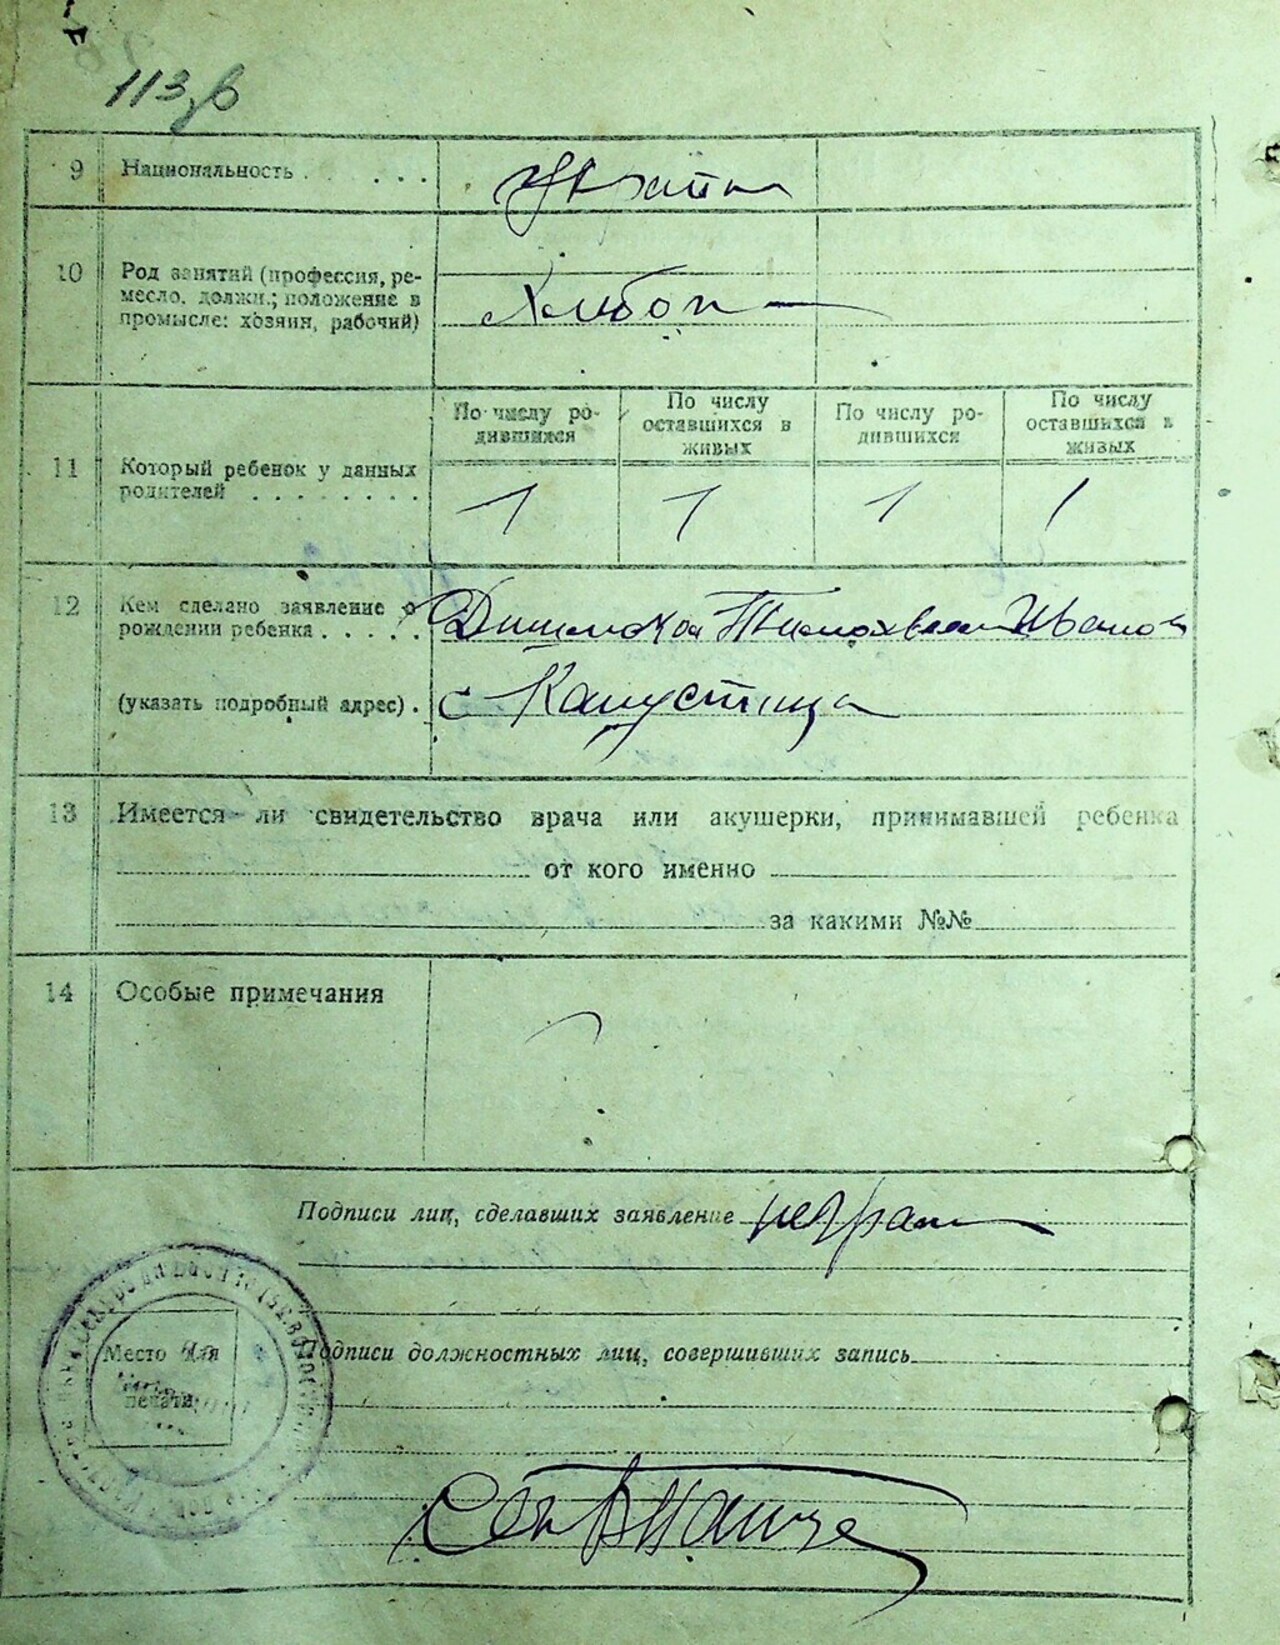 113 зв
9 Национальность . . . . . Украин
10 Род занятий (профессия, ре-
месло, должн.; положение в
промысле: хозяин, рабочий)
Хлібороб
По числу ро-
дившихся
По числу
оставшихся в
живых
По числу ро-
дившихся
По числу
оставшихся в
живых
11 Который ребенок у данных
родителей . . . . . . . .
1 1 1 1
12 Кем сделано заявление о
рождении ребенка . . . . .
Иванов
(указать подробный адрес) . с Капустинца
13 Имеется ли свидетельство врача или акушерки, принимавшей ребенка
от кого именно
за какими №№
14 Особые примечания
Подписи лиц, сделавших заявление неграм
Место для
печати
Подписи должностных лиц, совершивших запись
Секр